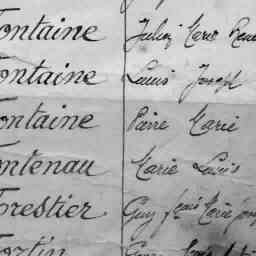 Fontaine Julien Marie René
Fontaine Louis Joseph
Fontaine Pierre Marie
Fontenau Marie Louis
Forestier Guy Jean Marie
Fortin